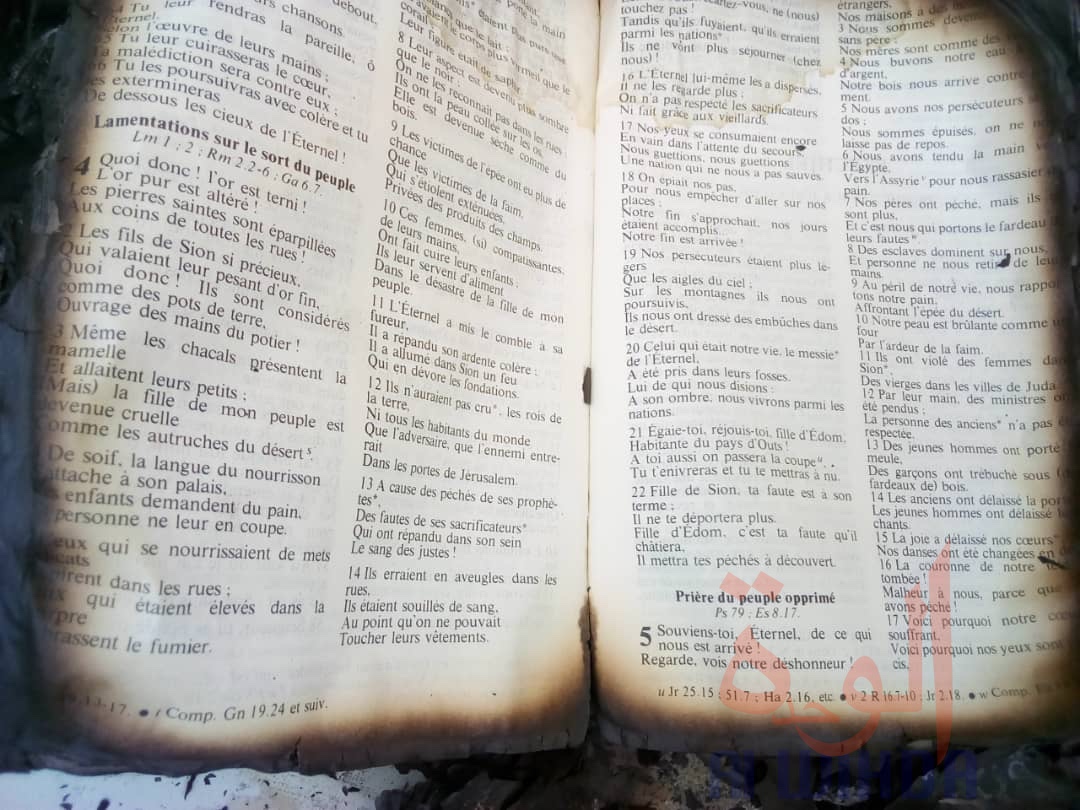 64 Tu leur rendras la pareille, ô
Éternel,
Selon l'œuvre de leurs mains ;
65 Tu leur cuirasseras le cœur,
Ta malédiction sera contre eux ;
66 Tu les poursuivras avec colère et tu
les extermineras
De dessous les cieux de l'Éternel !
Lamentations sur le sort du peuple
Lm 1 ; 2 ; Rm 2.2-6 ; Ga 6.7.
4 Quoi donc ! l'or est terni !
L'or pur est altéré !
Les pierres saintes sont éparpillées
Aux coins de toutes les rues !
2 Les fils de Sion si précieux,
Qui valaient leur pesant d'or fin,
Quoi donc ! Ils sont considérés
comme des pots de terre,
Ouvrage des mains du potier !
3 Même les chacals présentent la
mamelle
Et allaitent leurs petits ;
(Mais) la fille de mon peuple est
devenue cruelle
Comme les autruches du désert s.
De soif, la langue du nourrisson
attache à son palais,
enfants demandent du pain,
personne ne leur en coupe.
eux qui se nourrissaient de mets
icats
pirent dans les rues ;
ux qui étaient élevés dans la
rpre
rassent le fumier.
13-17. ● t Comp. Gn 19.24 et suiv.
que le lait ;
le corps plus vermeil que le
Leur figure était de saphir.
8 Leur aspect est devenu plus sombre
que le noir,
On ne les reconnaît pas dans les rues ;
Ils ont la peau collée sur les os,
Elle est devenue sèche comme du
bois.
9 Les victimes de l'épée ont eu plus de
chance
Que les victimes de la faim,
Qui s'étiolent exténuées,
Privées des produits des champs.
10 Ces femmes, (si) compatissantes,
de leurs mains,
Ont fait cuire leurs enfants ;
Ils leur servent d'aliment
Dans le désastre de la fille de mon
peuple.
11 L'Éternel a mis le comble à sa
fureur,
Il a répandu son ardente colère ;
Il a allumé dans Sion un feu
Qui en dévore les fondations.
12 Ils n'auraient pas cru*, les rois de
la terre,
Ni tous les habitants du monde
Que l'adversaire, que l'ennemi entre-
rait
Dans les portes de Jérusalem.
13 A cause des péchés de ses prophè-
tes*,
Des fautes de ses sacrificateurs*
Qui ont répandu dans son sein
Le sang des justes !
14 Ils erraient en aveugles dans les
rues,
Ils étaient souillés de sang,
Au point qu'on ne pouvait
Toucher leurs vêtements.
touchez pas !
Tandis qu'ils fuyaient, qu'ils erraient
parmi les nations*
Ils ne vont plus séjourner (chez
nous) !
16 L'Éternel lui-même les a dispersés,
il ne les regarde plus ;
On n'a pas respecté les sacrificateurs
Ni fait grâce aux vieillards.
17 Nos yeux se consumaient encore
En vain dans l'attente du secours.
Nous guettions, nous guettions
Une nation qui ne nous a pas sauvés.
18 On épiait nos pas,
Pour nous empêcher d'aller sur nos
places ;
Notre fin s'approchait, nos jours
étaient accomplis...
Notre fin est arrivée !
19 Nos persécuteurs étaient plus lé-
gers
Que les aigles du ciel ;
Sur les montagnes ils nous ont
poursuivis,
Ils nous ont dressé des embûches dans
le désert.
20 Celui qui était notre vie, le messie*
de l'Éternel,
A été pris dans leurs fosses.
Lui de qui nous disions :
A son ombre, nous vivrons parmi les
nations.
21 Égaie-toi, réjouis-toi, fille d'Édom,
Habitante du pays d'Outs !
A toi aussi on passera la coupe u,
Tu t'enivreras et tu te mettras à nu.
22 Fille de Sion, ta faute est à son
terme ;
Il ne te déportera plus.
Fille d'Édom, c'est ta faute qu'il
châtiera,
Il mettra tes péchés à découvert.
Prière du peuple opprimé
Ps 79 ; Es 8.17.
5 Souviens-toi, Éternel, de ce qui
nous est arrivé !
Regarde, vois notre déshonneur !
u Jr 25.15 ; 51.7 ; Ha 2.16, etc. ● v 2 R 16.7-10 ; Jr 2.18. ● w Comp.
étrangers,
Nos maisons à des
3 Nous sommes devenus
sans père ;
Nos mères sont comme des
4 Nous buvons notre eau à
d'argent,
Notre bois nous arrive contre
ment.
5 Nous avons nos persécuteurs
dos ;
Nous sommes épuisés, on ne
laisse pas de repos.
6 Nous avons tendu la main
l'Égypte,
Vers l'Assyrie v pour nous rassasier
pain.
7 Nos pères ont péché, mais ils
sont plus,
Et c'est nous qui portons le fardeau
leurs fautes w.
8 Des esclaves dominent sur nous,
Et personne ne nous retire de leurs
mains.
9 Au péril de notre vie, nous rappor
tons notre pain,
Affrontant l'épée du désert.
10 Notre peau est brûlante comme un
four
Par l'ardeur de la faim.
11 Ils ont violé des femmes dans
Sion*,
Des vierges dans les villes de Juda
12 Par leur main, des ministres ont
été pendus ;
La personne des anciens* n'a pas été
respectée.
13 Des jeunes hommes ont porté
meule,
Des garçons ont trébuché sous (
fardeaux de) bois.
14 Les anciens ont délaissé la porte
Les jeunes hommes ont délaissé
chants.
15 La joie a délaissé nos cœurs*
Nos danses ont été changées en
16 La couronne de notre
tombée !
Malheur à nous, parce que
avons péché !
17 Voici pourquoi notre cœur
souffrant,
Voici pourquoi nos yeux sont
cis,
الوحدة